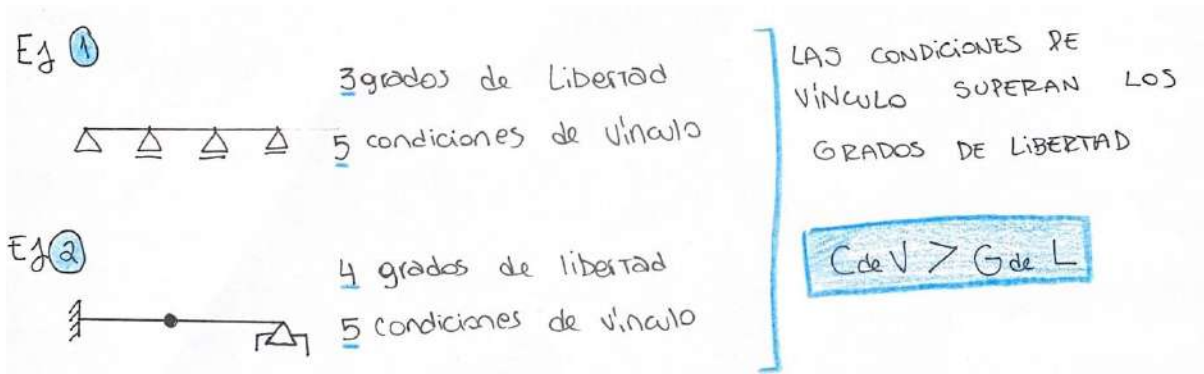 Ej 1
3 grados de Libertad
5 condiciones de vínculo
Ej 2
4 grados de libertad
5 condiciones de vínculo
LAS CONDICIONES DE
VÍNCULO SUPERAN LOS
GRADOS DE LIBERTAD
C de V > G de L